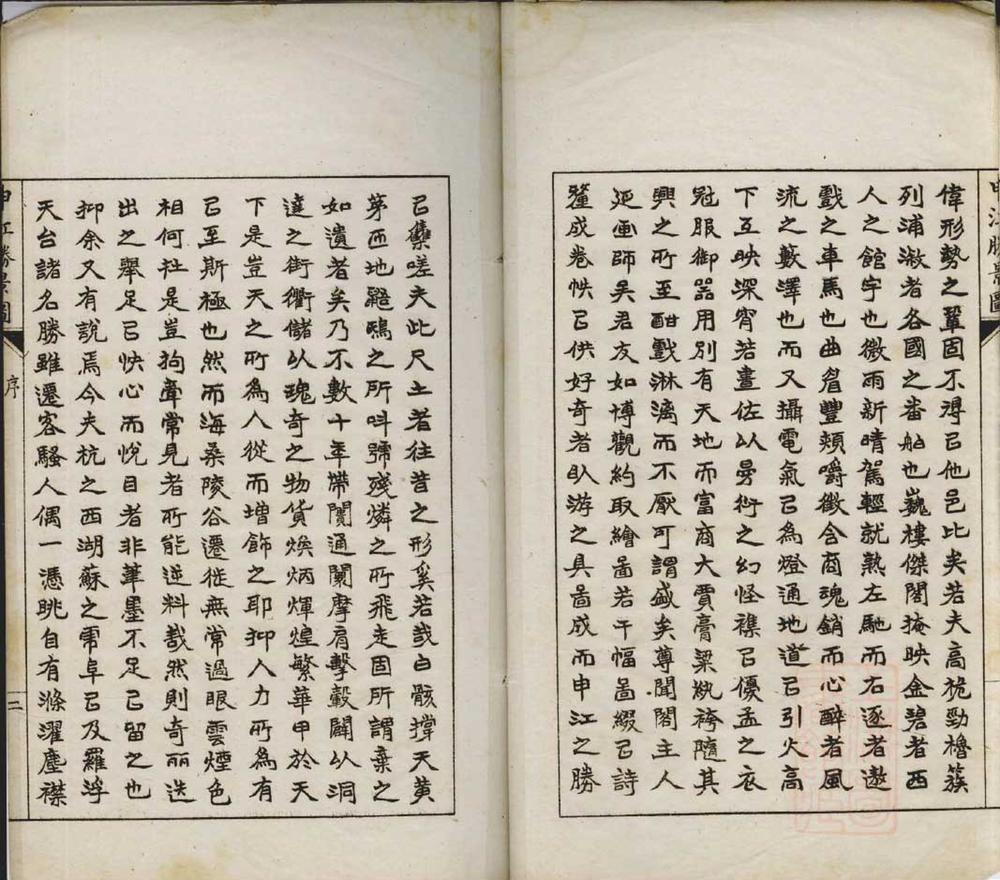 偉形勢之鞏固不淂㠯他邑比矣若夫高桅勁櫓簇
列浦漵者各國之畨舶也巍樓傑閣掩映金碧者西
人之館宇也微雨新晴駕輕就熟左馳而右逐者遨
戲之車馬也曲眉豐頰嚼徵含商魂銷而心醉者風
流之藪澤也而又攝電氣㠯為燈通地道㠯引火高
下互映深宵若晝佐以曼衍之幻怪襍㠯優孟之衣
冠服御器用別有天地而富商大賈膏粱紈袴隨其
興之所至酣戲淋漓而不厭可謂盛矣尊聞閣主人
迺畫師吳君友如博觀約取繪啚若干幅啚綴㠯詩
釐成卷帙㠯供好奇者臥游之具啚成而申江之勝
㠯集嗟夫此尺土者往昔之形奚若哉白骸撐天黃
茅匝地鼯鴟之所叫號殘燐之所飛走固所謂棄之
如遺者矣乃不數十年帶闤通闠摩肩擊轂闢以洞
達之街衢儲以瑰奇之物貨煥炳煇煌繁華甲於天
下是豈天之所為人從而增飾之耶抑人力所為有
㠯至斯極也然而海桑陵谷遷徙無常過眼雲煙色
相何在是豈拘牽常見者所能逆料哉然則奇麗迭
出之舉足㠯快心而悅目者非筆墨不足㠯留之也
抑余又有說焉今夫杭之西湖蘇之虎阜㠯及羅浮
天台諸名勝雖遷客騷人偶一憑眺自有滌濯塵襟
申江勝景圖
序
二